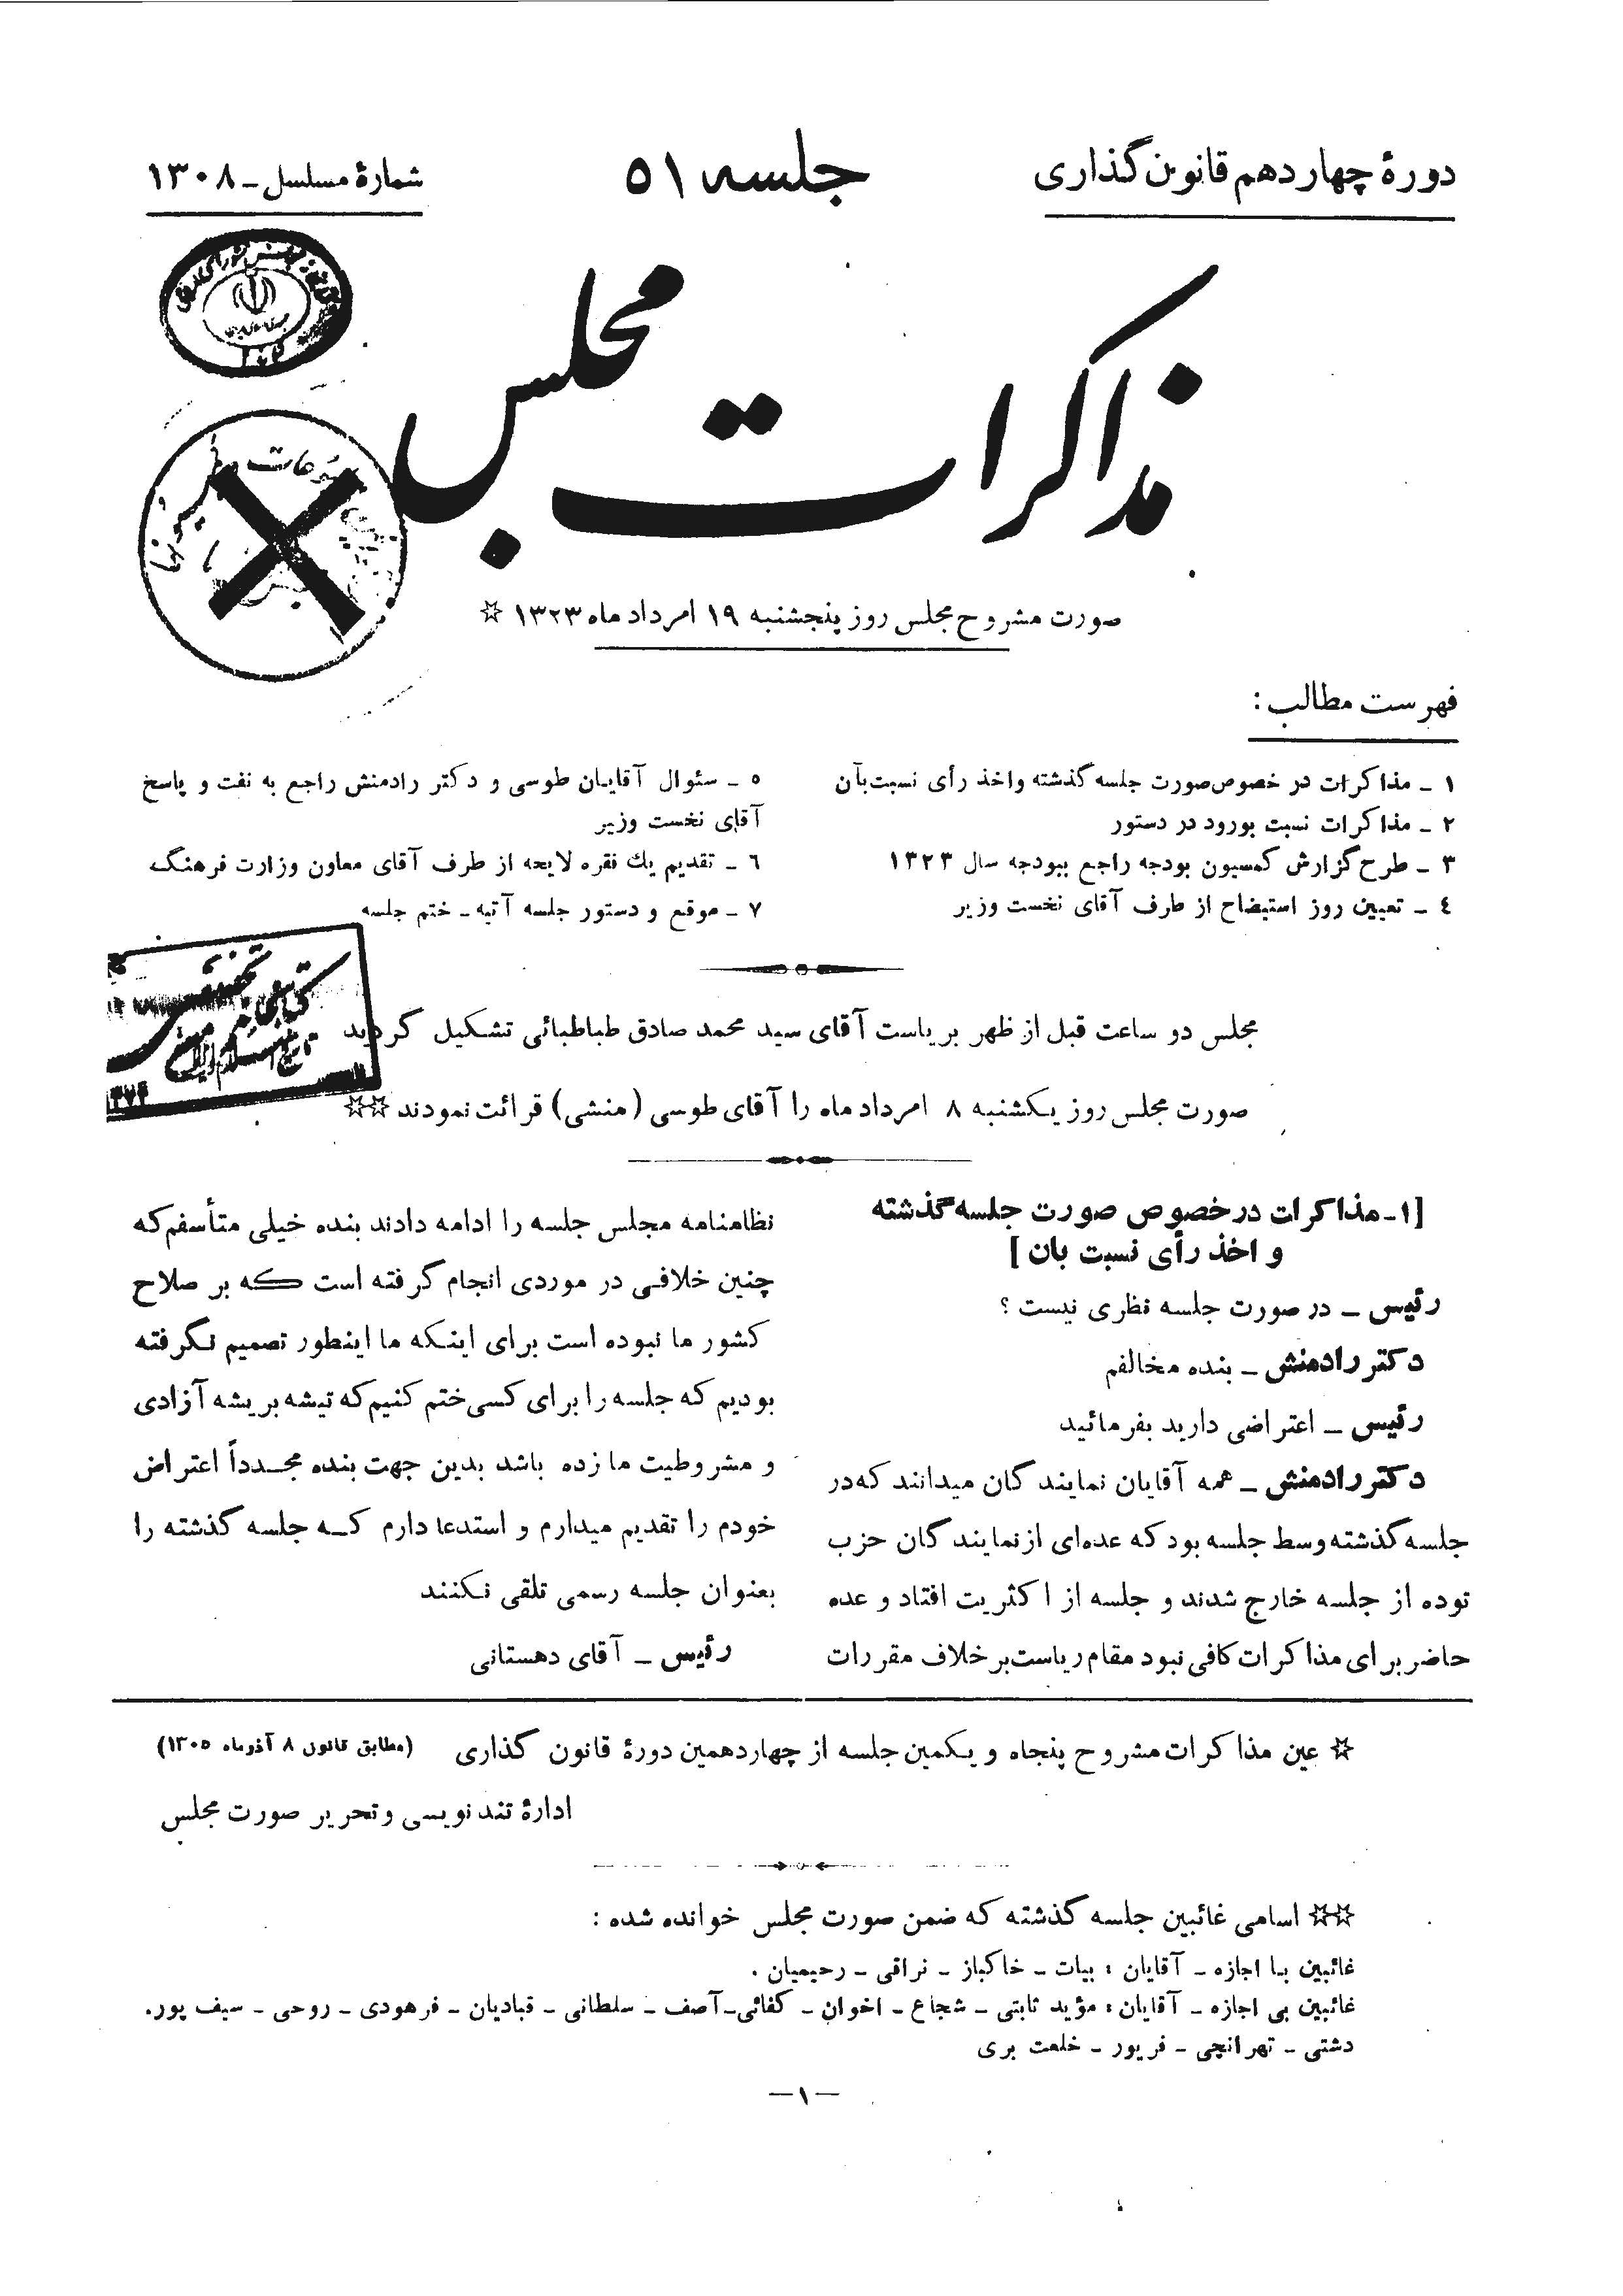 دورهٔ چهاردهم قانون‌گذاری
جلسه ۵۱
شمارهٔ مسلسل ـ ۱۳۰۸
مذاکرات مجلس
صورت مشروح مجلس روز پنجشنبه ۱۹ امرداد ماه ۱۳۲۳ ☆
فهرست مطالب :
۱ ـ مذاکرات در خصوص صورت جلسه گذشته واخذ رأی نسبت بآن
۲ ـ مذاکرات نسبت بورود در دستور
۳ ـ طرح گزارش کمسیون بودجه راجع ببودجه سال ۱۳۲۳
۴ ـ تعیین روز استیضاح از طرف آقای نخست وزیر
۵ ـ سئوال آقایان طوسی و دکتر رادمنش راجع به نفت و پاسخ
آقای نخست وزیر
۶ ـ تقدیم یك نقره لایحه از طرف آقای معاون وزارت فرهنگ
۷ ـ موقع و دستور جلسه آتیه ـ ختم جلسه
مجلس دو ساعت قبل از ظهر بریاست آقای سید محمد صادق طباطبائی تشکیل گردید
صورت مجلس روز یکشنبه ۸ امرداد ماه را آقای طوسی (منشی) قرائت نمودند ☆☆
[۱ـ مذاکرات درخصوص صورت جلسه گذشته
و اخذ رأی نسبت بان ]
رئیس ـ در صورت جلسه نظری نیست ؟
دکتر رادمنش ـ بنده مخالفم
رئیس ـ اعتراضی دارید بفرمائید
دکتر رادمنش ـ همه آقایان نمایندگان میدانند که در
جلسه گذشته وسط جلسه بود که عده‌ای از نمایندگان حزب
توده از جلسه خارج شدند و جلسه از اکثریت افتاد و عده
حاضر برای مذاکرات کافی نبود مقام ریاست برخلاف مقررات
نظامنامه مجلس جلسه را ادامه دادند بنده خیلی متأسفم که
چنین خلافی در موردی انجام گرفته است که بر صلاح
کشور ما نبوده است برای اینکه ما اینطور تصمیم نگرفته
بودیم که جلسه را برای کسی ختم کنیم که تیشه بریشه آزادی
و مشروطیت ما زده باشد بدین جهت بنده مجدداً اعتراض
خودم را تقدیم میدارم و استدعا دارم که جلسه گذشته را
بعنوان جلسه رسمی تلقی نکنند
رئیس ـ آقای دهستانی
☆ عین مذاکرات مشروح پنجاه و یکمین جلسه از چهاردهمین دورهٔ قانون گذاری (مطابق قانون ۸ آذرماه ۱۳۰۵)
ادارهٔ تندنویسی و تحریر صورت مجلس
☆☆ اسامی غائبین جلسه گذشته که ضمن صورت مجلس خوانده شده :
غائبین با اجازه ـ آقایان : بیات ـ خاکباز ـ نراقی ـ رحیمیان .
غائبین بی اجازه ـ آقایان : مؤید ثابتی ـ شجاع ـ اخوان ـ کفائی ـ آصف ـ سلطانی ـ قبادیان ـ فرهودی ـ روحی ـ سیف پور.
دشتی ـ تهرانچی ـ فریور ـ خلعت بری
—۱—